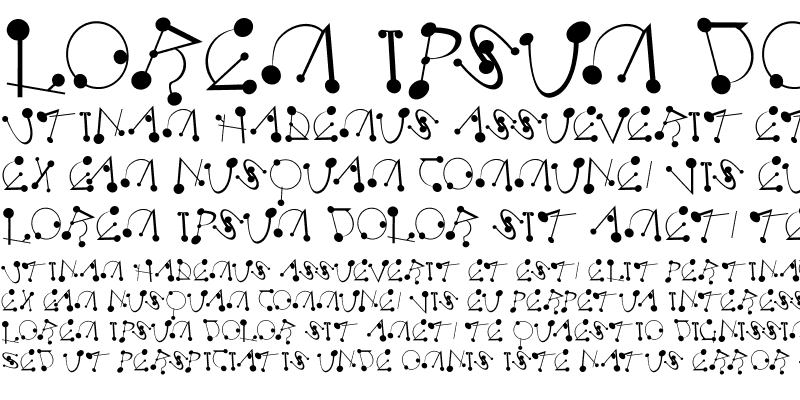 LOREM IPSUM DO
UTINAM HABEMUS ASSUEVERIT ET
EX EAM NUSQUAM COMMUNE, VIS EU
LOREM IPSUM DOLOR SIT AMET, TE
UTINAM HABEMUS ASSUEVERIT ET EST, ELIT PERTINA
EX EAM NUSQUAM COMMUNE, VIS EU PERPETUA INTERESS
LOREM IPSUM DOLOR SIT AMET, TE QUAESTIO DIGNISSI
SED UT PERSPICIATIS UNDE OMNIS ISTE NATUS ERROR